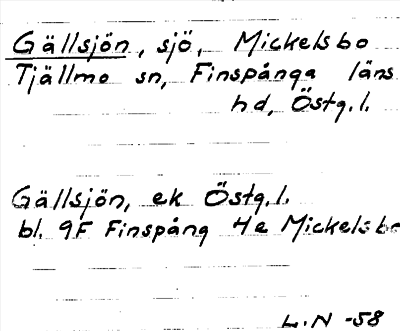 Gällsjön, sjö, Mickelsbo
Tjällmo sn, Finspånga läns
hd, Östg.l.
Gällsjön, ek Östg.l.
bl. 9F Finspång 4e Mickelsbo
L.N -58